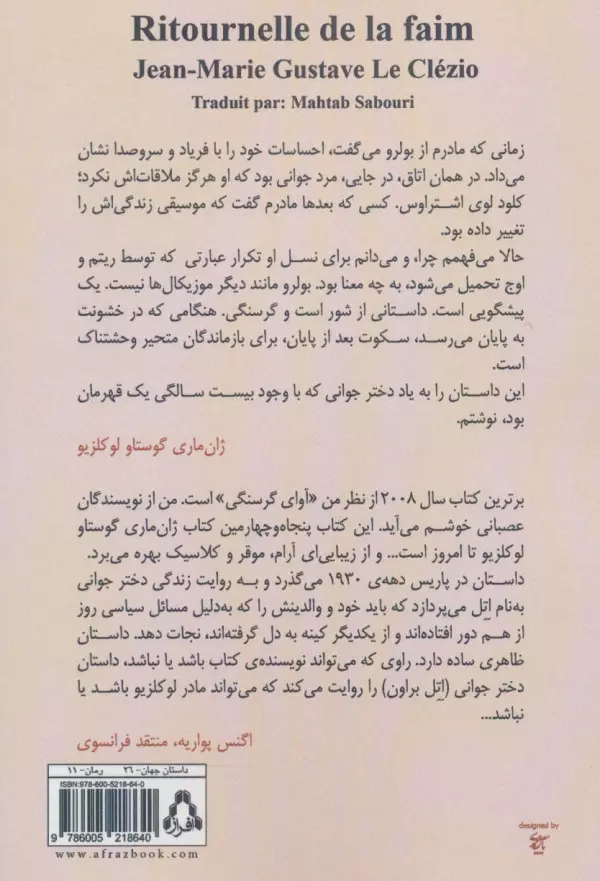 Ritournelle de la faim
Jean-Marie Gustave Le Clézio
Traduit par: Mahtab Sabouri
زمانی که مادرم از بولرو می‌گفت، احساسات خود را با فریاد و سروصدا نشان
می‌داد. در همان اتاق، در جایی، مرد جوانی بود که او هرگز ملاقات‌اش نکرد؛
کلود لوی اشتراوس. کسی که بعدها مادرم گفت که موسیقی زندگی‌اش را
تغییر داده بود.
حالا می‌فهمم چرا، و می‌دانم برای نسل او تکرار عبارتی که توسط ریتم و
اوج تحمیل می‌شود، به چه معنا بود. بولرو مانند دیگر موزیکال‌ها نیست. یک
پیشگویی است. داستانی از شور است و گرسنگی. هنگامی که در خشونت
به پایان می‌رسد، سکوت بعد از پایان، برای بازماندگان متحیر وحشتناک
است.
این داستان را به یاد دختر جوانی که با وجود بیست سالگی یک قهرمان
بود، نوشتم.
ژان‌ماری گوستاو لوکلزیو
برترین کتاب سال ۲۰۰۸ از نظر من «آوای گرسنگی» است. من از نویسندگان
عصبانی خوشم می‌آید. این کتاب پنجاه‌وچهارمین کتاب ژان‌ماری گوستاو
لوکلزیو تا امروز است... و از زیبایی‌ای آرام، موقر و کلاسیک بهره می‌برد.
داستان در پاریس دهه‌ی ۱۹۳۰ می‌گذرد و به روایت زندگی دختر جوانی
به‌نام اِتِل می‌پردازد که باید خود و والدینش را که به‌دلیل مسائل سیاسی روز
از هم دور افتاده‌اند و از یکدیگر کینه به دل گرفته‌اند، نجات دهد. داستان
ظاهری ساده دارد. راوی که می‌تواند نویسنده‌ی کتاب باشد یا نباشد، داستان
دختر جوانی (اِتِل براون) را روایت می‌کند که می‌تواند مادر لوکلزیو باشد یا
نباشد...
اگنس پواریه، منتقد فرانسوی
داستان جهان- ۲۶ رمان- ۱۱
ISBN:978-600-5218-64-0
افراز
9 786005 218640
www.afrazbook.com
designed by